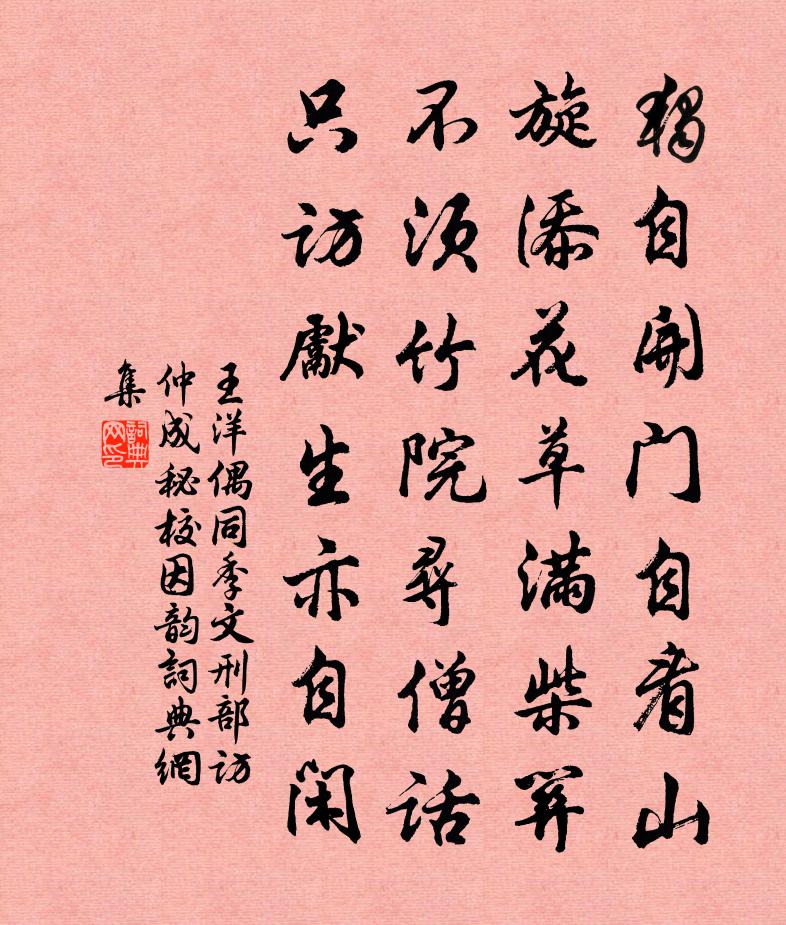 獨自開门自看山
旋添花草满柴関
不须竹院尋僧話
只访獻生亦自闲
王洋偶同季文刑部访
仲成秘校因韵詞典網
集
詞典网印